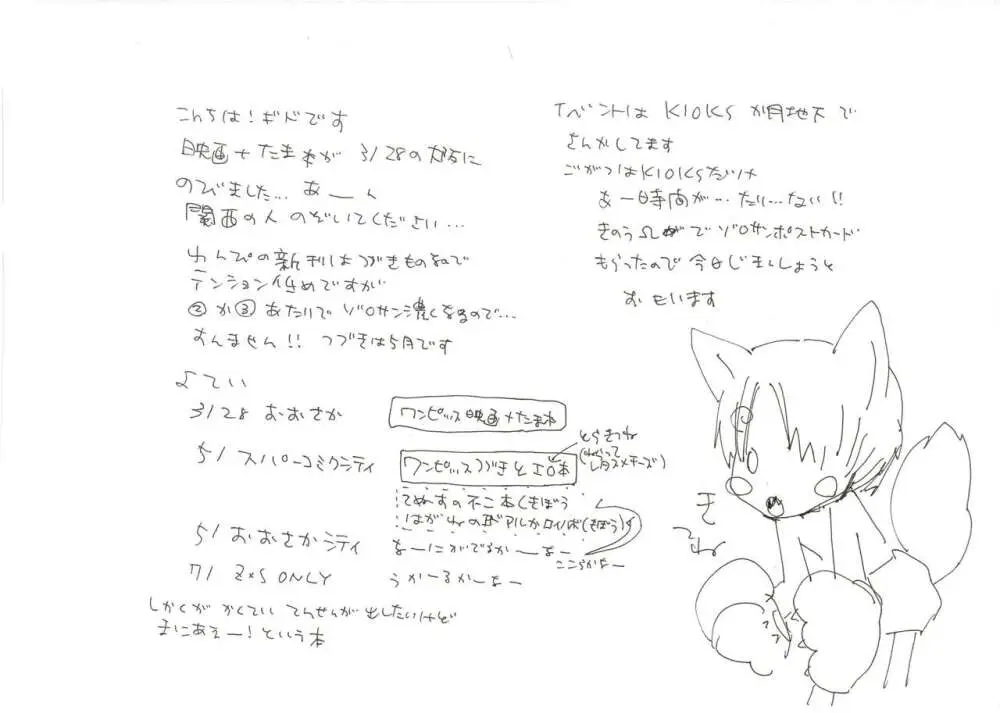 こんちは!ギドです
映画+たま本が 3/28の大阪に
のびました… あーん
関西の人 のぞいてください…
わんぴの新刊はつづきものなので
テンション低めですが
② か③ あたりで ゾロサン濃くなるので…
すんません!! つづきは5月です
よてい
3/28 おおさか
ワンピッス映画+たま本
5/1 スパーコミクシティ
ワンピッスつづきと 本
とらきつね
てぬすの不二本(きぼう
はがれんの アルかロイ本(きぼう)
5/1 おおさかシティ
なーにがでるかーなー
ここらかなー
7/1 Z×S ONLY
うかーるかーなー
しかくが かくてい てんせんが 出したいけど
まにあえー!という本
イベントは K10KS が月地下で
さんかしてます
ごがつはK10KSだけ
あー時間が… たり…ない!!
きのう で ゾロサンポストカード
もらったので 今はじまんしようと
おもいます
きつね